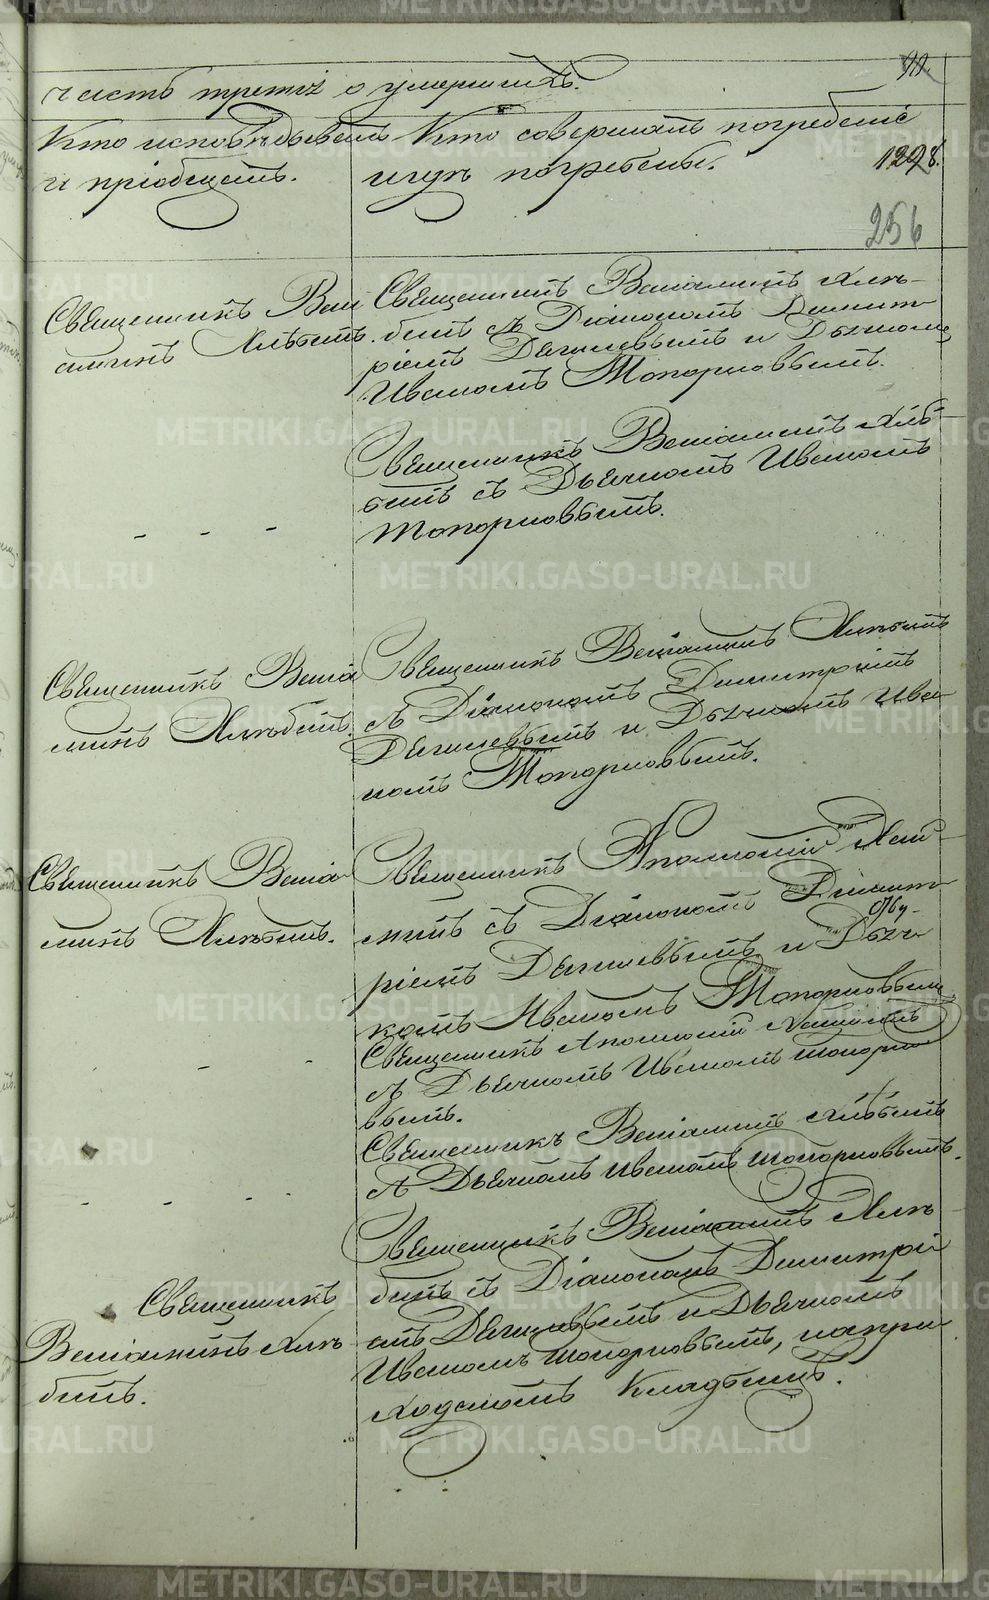 часть третія о умершихъ.
Кто исповѣдывалъ
и пріобщалъ.
Кто совершалъ погребеніе
и гдѣ погребены.
1298.
256
Священникъ Веніа
минъ Хлѣбинъ.
Священникъ Веніаминъ Хлѣ-
бинъ съ Діакономъ Димит
ріемъ и Дьячкомъ
Иваномъ Топорковымъ.
Священникъ Веніаминъ Хлѣ-
бинъ съ Дьячкомъ Иваномъ
Топорковымъ.
- - -
Священникъ Веніа
минъ Хлѣбинъ.
Священникъ Веніаминъ Хлѣбинъ
съ Діакономъ Димитріемъ
и Дьячкомъ Ива
номъ Топорковымъ.
Священникъ Веніа
минъ Хлѣбинъ.
Священникъ Аполлоній
съ Діакономъ Димит
ріемъ и Дьяч
комъ Иваномъ Топорковымъ
Священникъ Аполлоній
съ Дьячкомъ Иваномъ Топорко
вымъ.
- - -
Священникъ Веніаминъ Хлѣбинъ
съ Дьячкомъ Иваномъ Топорковымъ.
- - -
Священникъ
Веніаминъ Хлѣ
бинъ.
Священникъ Веніаминъ Хлѣ
бинъ съ Діакономъ Димитрі
емъ и Дьячкомъ
Иваномъ Топорковымъ, на при
ходскомъ кладбищѣ.
METRIKI.GASO-URAL.RU